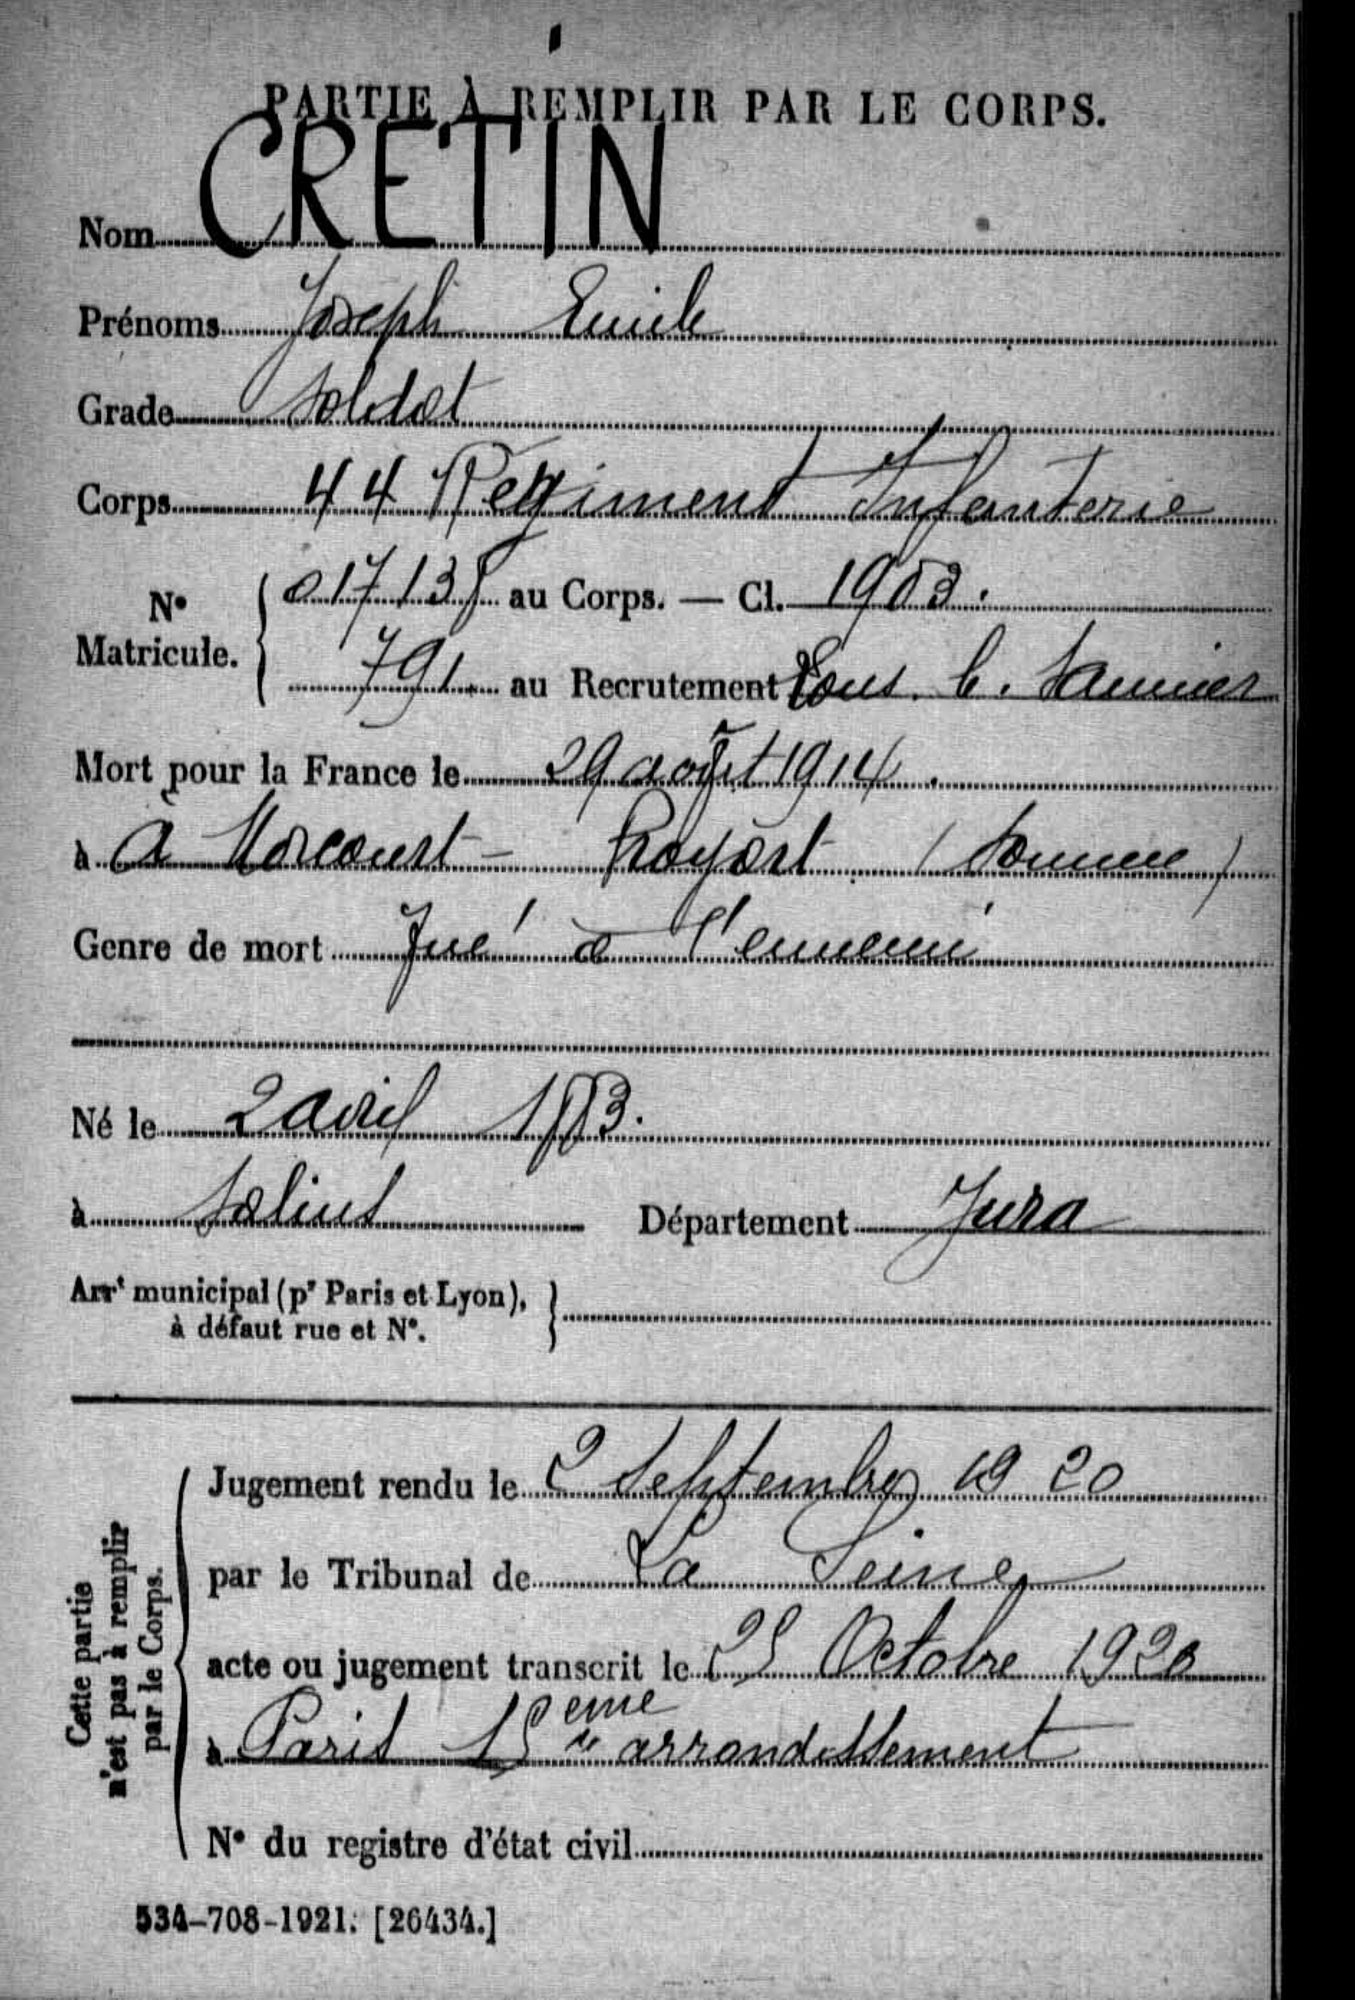 PARTIE À REMPLIR PAR LE CORPS.
Nom CRETIN
Prénoms Joseph Emile
Grade Soldat
Corps 44 Régiment Infanterie
N° Matricule. 017138 au Corps. — Cl. 1903.
791 au Recrutement Lons. l. Saunier
Mort pour la France le 29 août 1914.
à à Morcourt - Proyart (Somme)
Genre de mort Tué à l'ennemi
Né le 2 avril 1883.
à Salins Département Jura
Arrt municipal (pr Paris et Lyon),
à défaut rue et N°.
Cette partie
n'est pas à remplir
par le Corps.
Jugement rendu le 2 Septembre 1920
par le Tribunal de La Seine
acte ou jugement transcrit le 25 Octobre 1920
à Paris 15eme arrondissement
N° du registre d'état civil
534-708-1921. [26434.]